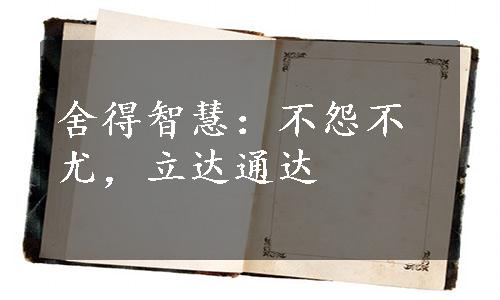 舍得智慧：不怨不
尤，立达通达